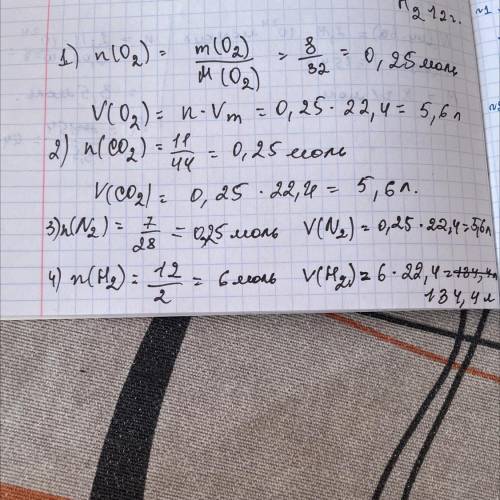 H₂ 12г.
№1
1) n(O₂) = m(O₂)/M(O₂) = 8/32 = 0,25 моль
V(O₂) = n · Vm = 0,25 · 22,4 = 5,6 л
2) n(CO₂) = 11/44 = 0,25 моль
V(CO₂) = 0,25 · 22,4 = 5,6 л.
3) n(N₂) = 7/28 = 0,25 моль V(N₂) = 0,25 · 22,4 = 5,6 л
4) n(H₂) = 12/2 = 6 моль V(H₂) = 6 · 22,4 = 134,4 л
134,4 л